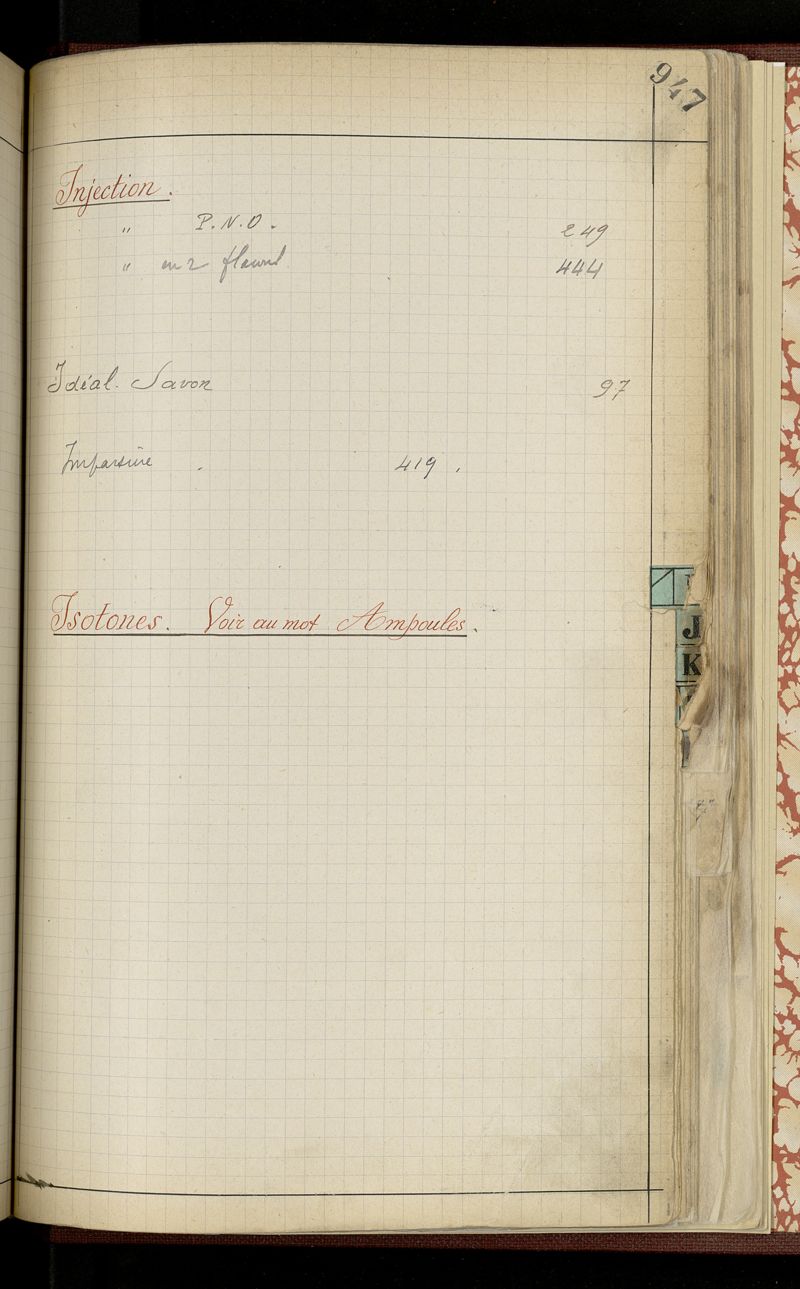 947
Injection.
" P.N.O. 249
" en 2 444
Idéal. Savon 97
419.
Isotones. Voir au mot Ampoules.
J
K